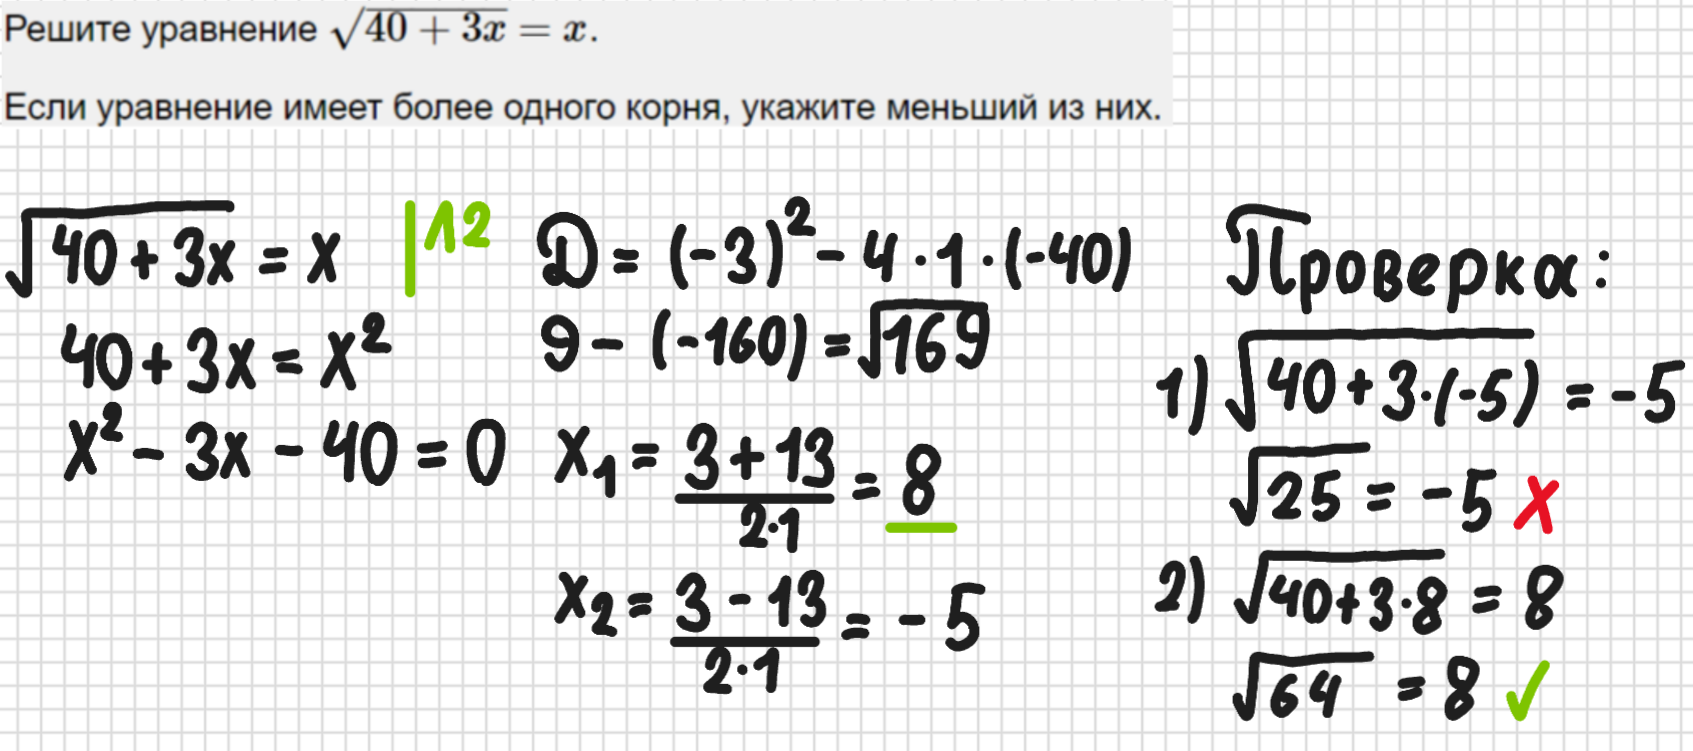 Решите уравнение √(40 + 3x) = x.
Если уравнение имеет более одного корня, укажите меньший из них.
√(40 + 3x) = x |^2
40 + 3x = x²
x² - 3x - 40 = 0
D = (-3)² - 4 · 1 · (-40)
9 - (-160) = √169
x₁ = (3 + 13)/(2·1) = 8
x₂ = (3 - 13)/(2·1) = -5
Проверка:
1) √(40 + 3·(-5)) = -5
√25 = -5 ✗
2) √(40 + 3·8) = 8
√64 = 8 ✓